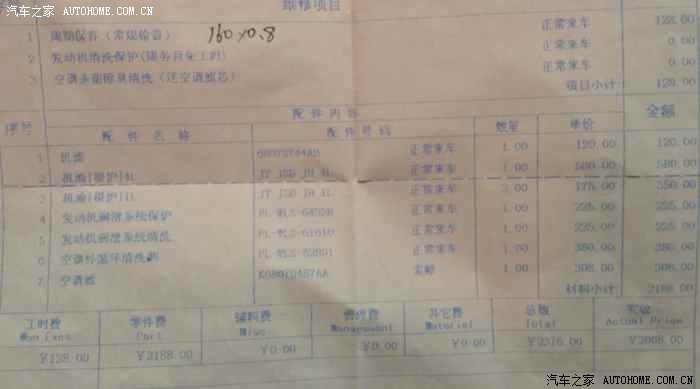 汽车之家 AUTOHOME.COM.CN
维修项目
1 周期保养(常规检查) 160×0.8 正常来车 128.00
2 发动机清洗保护(服务月免工时) 正常来车 0.00
3 空调杀菌除臭清洗(送空调滤芯) 正常来车 0.00
项目小计 128.00
配件内容 金额
序号 配件名称 配件号码 数量 单价
1 机滤 正常来车 1.00 120.00 120.00
2 机油[银护]4L JY JSD JH 4L 正常来车 1.00 580.00 580.00
3 机油[银护]1L JY JSD JH 1L 正常来车 2.00 175.00 350.00
4 发动机润滑系统保护 正常来车 1.00 225.00 225.00
5 发动机润滑系统清洗 正常来车 1.00 225.00 225.00
6 空调外循环清洗剂 正常来车 1.00 380.00 380.00
7 空调滤 1.00 308.00 308.00
材料小计 2188.00
工时费 零件费 辅料费 管理费 其它费 总额 实收
Man Fare Part Misc. Management Material Total Actual Price
¥128.00 ¥2188.00 ¥0.00 ¥0.00 ¥0.00 ¥2316.00 ¥2008.00
汽车之家 AUTOHOME.COM.CN